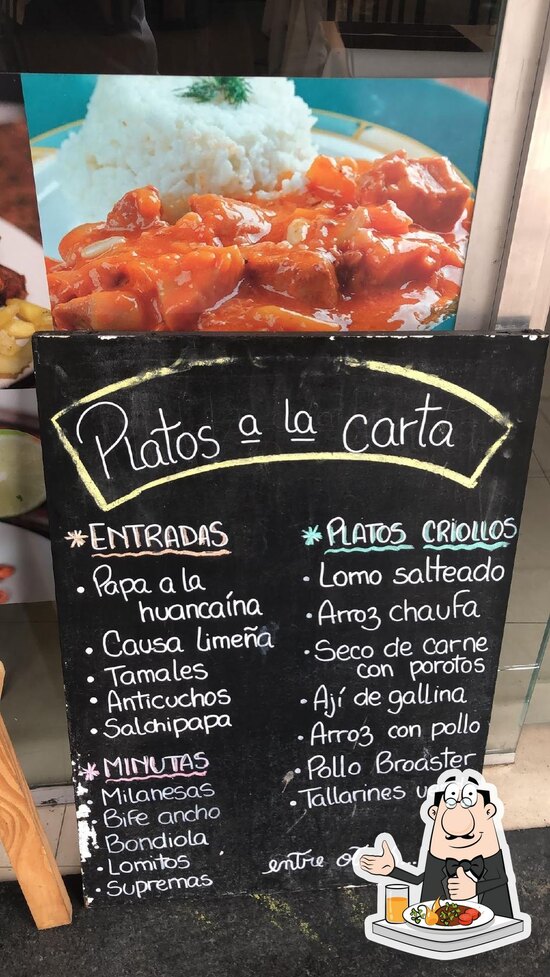 Platos a la carta
* ENTRADAS
• Papa a la
huancaína
• Causa Limeña
• Tamales
• Anticuchos
• Salchipapa
* MINUTAS
Milanesas
Bife ancho
Bondiola
• Lomitos
• Supremas
* PLATOS CRIOLLOS
• Lomo salteado
• Arroz chaufa
• Seco de carne
con porotos
• Ají de gallina
• Arroz con pollo
• Pollo Broaster
• Tallarines
entre